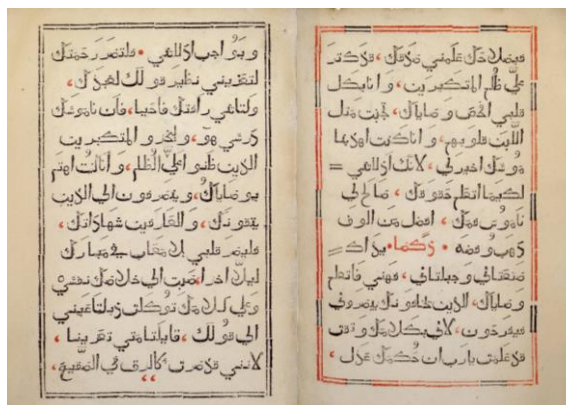 علمني قد كثر
عليَّ ظلم المتكبرين، وانا بكل
قلبي افحص وصاياك، تجبنت مثل
اللبن قلوبهم، وانا كنت
لي، لانك
لكيما اتعلم حقوقك، صالح لي
ناموس فمك، افضل من الوف
ذهب وفضه • يداك
صنعتاني وجبلتاني، فهمني فاتعلم
وصاياك، الذين يخافونك يبصروني
فيفرحون، لاني بكلامك وثقت
قد علمت يارب ان حكمك عدل،
فلتصر رحمتك
لتعزيني نظير قولك لعبدك،
ولتاتني رافتك فاحيا، فان ناموسك
درسي هو، المتكبرين
الذين الظلم، وانا كنت اهتم
بوصاياك، الي الذين
يتقونك، والعارفين شهاداتك،
فليصر قلبي بلا معاب في
ليلا اخزا، صبت الي خلاصك نفسي
وعلي كلامك توكلت عيني
الي قولك، قايلتا متي تعزينا،
لانني قد صرت كالزق في الصقيع،